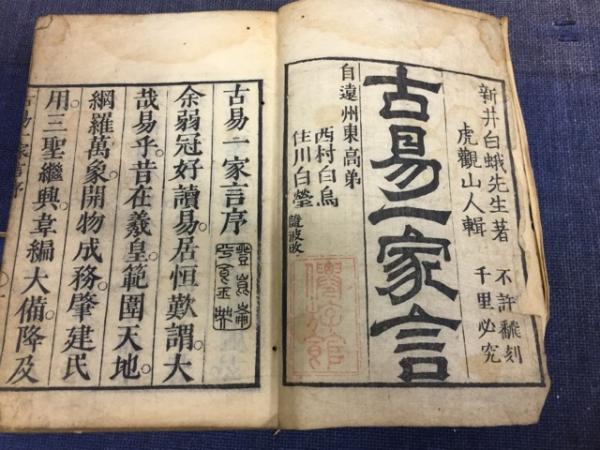 新井白蛾先生著
虎觀山人輯
不許飜刻
千里必究
古易一家言
自遠州東高弟
西村白烏
住川白瑩
古易一家言序
余弱冠好讀易。居恒歎謂。大
哉易乎。昔在羲皇。範圍天地。
網羅萬象。開物成務。肇建民
用。三聖繼興。韋編大備。降及
古易一家言序